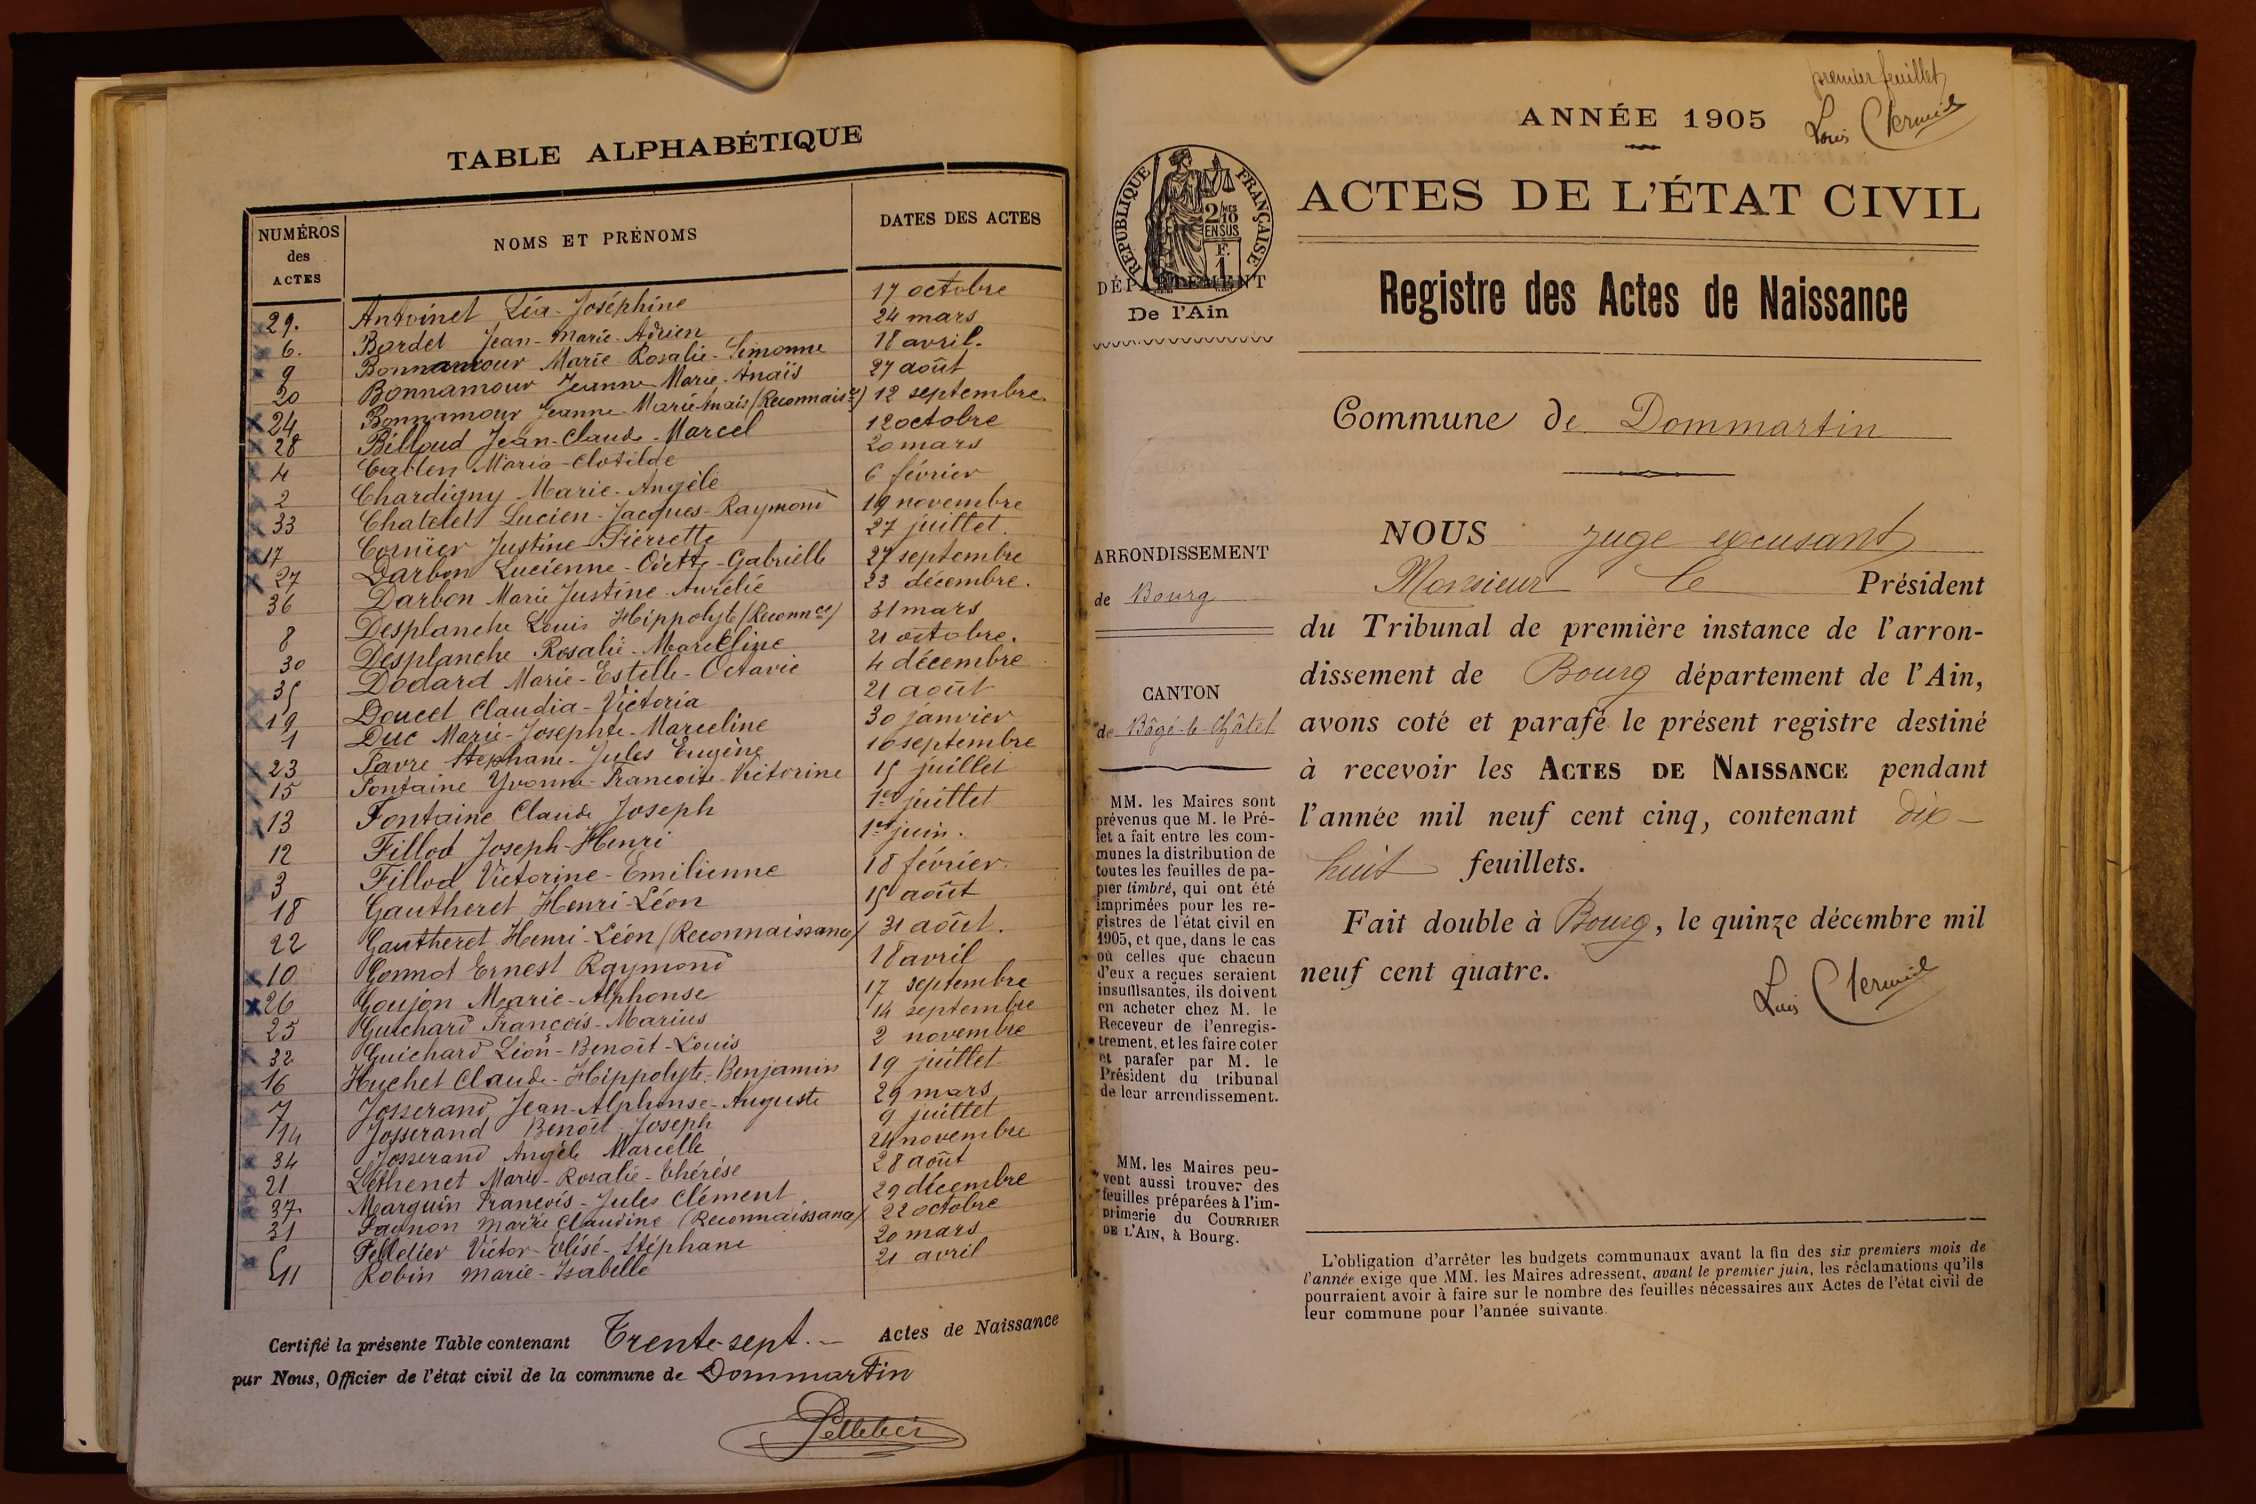 TABLE ALPHABÉTIQUE
NUMÉROS des ACTES
NOMS ET PRÉNOMS
DATES DES ACTES
29. Antoinet Léa-Joséphine 17 octobre
6. Bordet Jean-Marie-Adrien 24 mars
9 Bonnamour Marie Rosalie-Simonne 18 avril.
20 Bonnamour Jeanne Marie-Anaïs 27 août
24 Bonnamour Jeanne-Marie-Anaïs (Reconnaisce) 12 septembre.
28 Billoud Jean-Claude-Marcel 12 octobre
4 Maria-Clotilde 20 mars
2 Chardigny Marie-Angèle 6 février
33 Chatelet Lucien-Jacques-Raymond 19 novembre
17 Cornier Justine-Pierrette 27 juillet.
27 Darbon Lucienne-Odette-Gabrielle 27 septembre
36 Darbon Marie Justine-Aurélie 23 décembre.
8 Desplanche Louis Hippolyte (Reconnce) 31 mars
30 Desplanche Rosalie-Marcéline 21 octobre.
35 Dodard Marie-Estelle-Octavie 4 décembre
19 Doucet Claudia-Victoria 21 août
1 Duc Marie-Josephte-Marceline 30 janvier
23 Favre Stephane-Jules Eugène 10 septembre
15 Fontaine Yvonne-Francoise-Victorine 15 juillet
13 Fontaine Claude Joseph 1er juillet
12 Fillod Joseph-Henri 1er juin.
3 Fillod Victorine-Emilienne 18 février.
18 Gautheret Henri-Léon 15 août
22 Gautheret Henri-Léon (Reconnaissance) 31 août.
10 Gonnot Ernest Raymond 18 avril
26 Goujon Marie-Alphonse 17 septembre
25 Guichard François-Marius 14 septembre
32 Guichard Léon-Benoît-Louis 2 novembre
16 Huchet Claude-Hippolyte-Benjamin 19 juillet
7 Josserand Jean-Alphonse-Auguste 29 mars
14 Josserand Benoît Joseph 9 juillet
34 Josserand Angèle Marcelle 24 novembre
21 Léthenet Marie-Rosalie-Thérèse 28 août
37. Marguin Francois-Jules Clément. 29 décembre
31 Pagnon Marie Claudine (Reconnaissance) 22 octobre
5 Pelletier Victor-Elisé-Stéphane 20 mars
11 Robin Marie-Isabelle 21 avril
Certifié la présente Table contenant Trente-sept.- Actes de Naissance
par Nous, Officier de l'état civil de la commune de Dommartin
Pelletier
premier feuillet
Louis
ANNÉE 1905
RÉPUBLIQUE FRANÇAISE
2/10 EN SUS
F. 1
DÉPARTEMENT
De l'Ain
ACTES DE L'ÉTAT CIVIL
Registre des Actes de Naissance
Commune de Dommartin
ARRONDISSEMENT
de Bourg
CANTON
de Bâgé-le-Châtel
MM. les Maires sont
prévenus que M. le Pré-
fet a fait entre les com-
munes la distribution de
toutes les feuilles de pa-
pier timbré, qui ont été
imprimées pour les re-
gistres de l'état civil en
1905, et que, dans le cas
où celles que chacun
d'eux a reçues seraient
insuffisantes, ils doivent
en acheter chez M. le
Receveur de l'enregis-
trement, et les faire coter
et parafer par M. le
Président du tribunal
de leur arrondissement.
MM. les Maires peu-
vent aussi trouver des
feuilles préparées à l'im-
primerie du COURRIER
DE L'AIN, à Bourg.
NOUS Juge excusant
Monsieur le Président
du Tribunal de première instance de l'arron-
dissement de Bourg département de l'Ain,
avons coté et parafé le présent registre destiné
à recevoir les ACTES DE NAISSANCE pendant
l'année mil neuf cent cinq, contenant dix-
huit feuillets.
Fait double à Bourg, le quinze décembre mil
neuf cent quatre.
Louis
L'obligation d'arrêter les budgets communaux avant la fin des six premiers mois de
l'année exige que MM. les Maires adressent, avant le premier juin, les réclamations qu'ils
pourraient avoir à faire sur le nombre des feuilles nécessaires aux Actes de l'état civil de
leur commune pour l'année suivante.